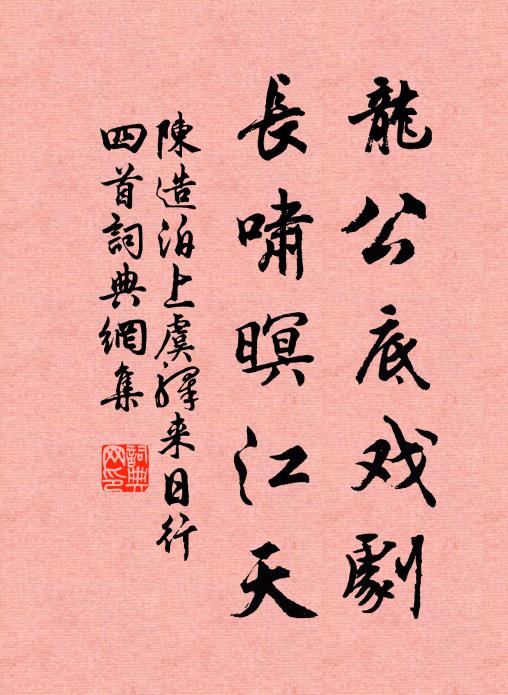 龍公底戏劇
長嘯暝江天
陳造泊上虞驛来日行
四首詞典網集
詞典
网印